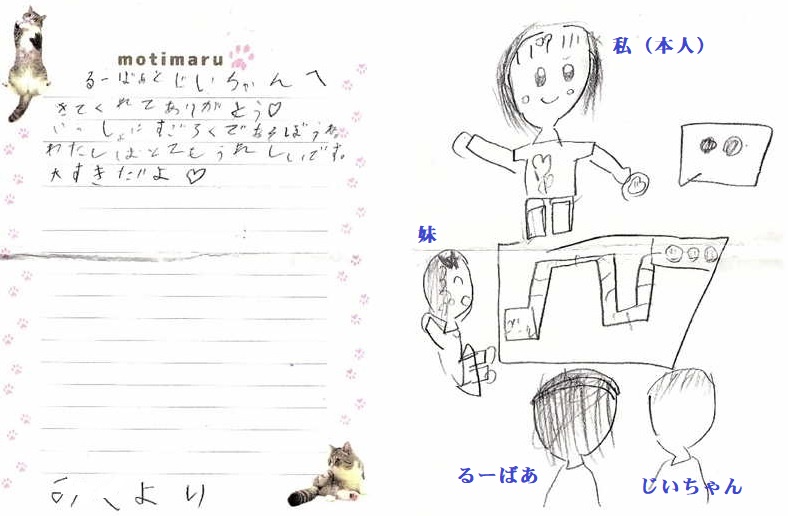 motimaru
るーばあとじいちゃんへ
きてくれてありがとう♡
いっしょにすごろくであそぼうね
わたしはとてもうれしいです。
大すきだよ♡
より
私（本人）
妹
るーばあ
じいちゃん